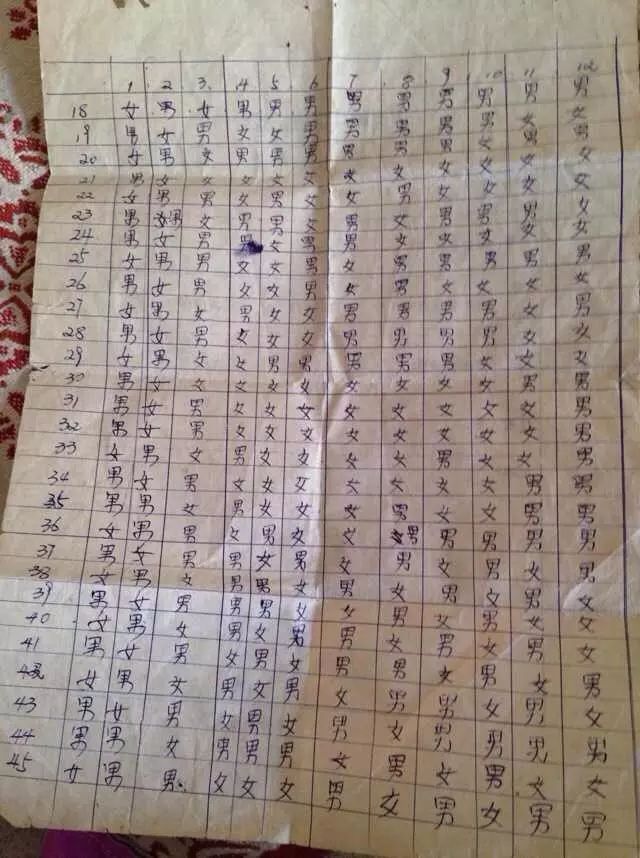 1 2 3 4 5 6 7 8 9 10 11 12
18 女 男 女 男 男 男 男 男 男 男 男 男
19 男 女 男 女 女 男 男 男 男 男 女 女
20 女 男 女 男 男 男 男 男 男 女 男 男
21 男 女 女 女 女 女 女 女 女 女 女 女
22 女 男 女 女 男 女 女 男 女 女 女 女
23 男 女男 女 男 男 女 男 女 男 男 男 女
24 男 女 男 女 男 男 女 女 女 女 女
25 女 男 男 女 女 男 女 男 男 男 男 男
26 男 女 男 女 女 男 女 男 女 女 女 女
27 女 男 女 男 女 女 男 男 男 男 女 男
28 男 女 男 女 女 女 男 男 男 男 女 女
29 女 男 女 女 男 男 男 男 男 女 女 女
30 男 女 女 女 女 女 女 女 女 女 男 男
31 男 女 男 女 女 女 女 女 女 女 女 男
32 男 女 男 女 女 女 女 女 女 女 女 男
33 女 男 女 男 女 女 女 女 男 女 女 男
34 男 女 男 女 女 女 女 女 女 女 男 男
35 男 男 女 男 女 女 女 男 女 女 男 男
36 女 男 男 女 男 女 女 女男 男 男 男 男
37 男 女 男 男 女 男 女 男 女 男 女 男
38 女 男 女 男 男 女 男 女 男 女 男 女
39 男 女 男 男 男 女 女 男 女 男 女 女
40 女 男 女 男 女 男 男 女 男 女 女 女
41 男 女 男 女 男 女 男 男 女 男 女 男
42 女 男 女 男 女 男 女 男 男 女 男 女
43 男 女 男 女 男 女 男 女 男 男 男 男
44 男 男 女 男 男 男 女 男 女 男 女 女
45 女 男 男 女 女 女 男 女 男 女 男 男